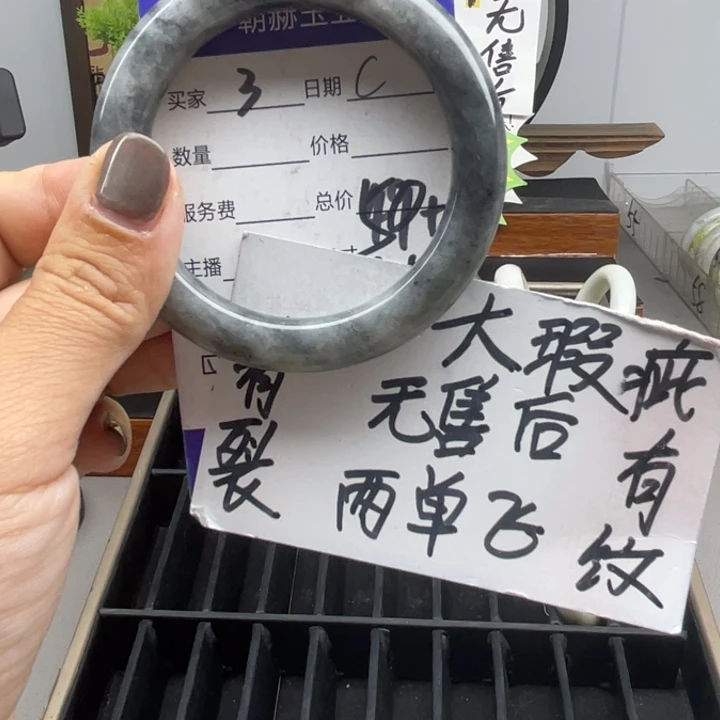 无售后
买家 3 日期 C
数量 价格
服务费 总价
主播
大瑕疵
无售后 有纹
有裂 两单飞